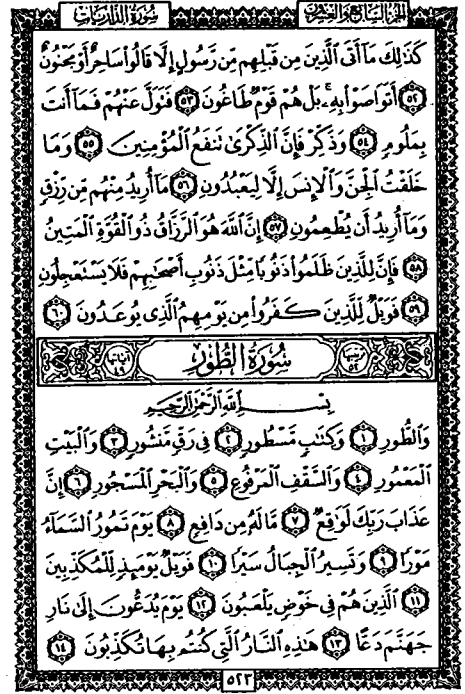 الجزء السابع والعشرون سورة الذاريات
كَذَٰلِكَ مَا أَتَى الَّذِينَ مِن قَبْلِهِم مِّن رَّسُولٍ إِلَّا قَالُوا سَاحِرٌ أَوْ مَجْنُونٌ
٥٢ أَتَوَاصَوْا بِهِ ۚ بَلْ هُمْ قَوْمٌ طَاغُونَ ٥٣ فَتَوَلَّ عَنْهُمْ فَمَا أَنتَ
بِمَلُومٍ ٥٤ وَذَكِّرْ فَإِنَّ الذِّكْرَىٰ تَنفَعُ الْمُؤْمِنِينَ ٥٥ وَمَا
خَلَقْتُ الْجِنَّ وَالْإِنسَ إِلَّا لِيَعْبُدُونِ ٥٦ مَا أُرِيدُ مِنْهُم مِّن رِّزْقٍ
وَمَا أُرِيدُ أَن يُطْعِمُونِ ٥٧ إِنَّ اللَّهَ هُوَ الرَّزَّاقُ ذُو الْقُوَّةِ الْمَتِينُ
٥٨ فَإِنَّ لِلَّذِينَ ظَلَمُوا ذَنُوبًا مِّثْلَ ذَنُوبِ أَصْحَابِهِمْ فَلَا يَسْتَعْجِلُونِ
٥٩ فَوَيْلٌ لِّلَّذِينَ كَفَرُوا مِن يَوْمِهِمُ الَّذِي يُوعَدُونَ ٦٠
ترتيبها ٥٢ سُورَةُ الطُّورِ آياتها ٤٩
بِسْمِ اللَّهِ الرَّحْمَٰنِ الرَّحِيمِ
وَالطُّورِ ١ وَكِتَابٍ مَّسْطُورٍ ٢ فِي رَقٍّ مَّنشُورٍ ٣ وَالْبَيْتِ
الْمَعْمُورِ ٤ وَالسَّقْفِ الْمَرْفُوعِ ٥ وَالْبَحْرِ الْمَسْجُورِ ٦ إِنَّ
عَذَابَ رَبِّكَ لَوَاقِعٌ ٧ مَّا لَهُ مِن دَافِعٍ ٨ يَوْمَ تَمُورُ السَّمَاءُ
مَوْرًا ٩ وَتَسِيرُ الْجِبَالُ سَيْرًا ١٠ فَوَيْلٌ يَوْمَئِذٍ لِّلْمُكَذِّبِينَ
١١ الَّذِينَ هُمْ فِي خَوْضٍ يَلْعَبُونَ ١٢ يَوْمَ يُدَعُّونَ إِلَىٰ نَارِ
جَهَنَّمَ دَعًّا ١٣ هَٰذِهِ النَّارُ الَّتِي كُنتُم بِهَا تُكَذِّبُونَ ١٤
٥٢٣